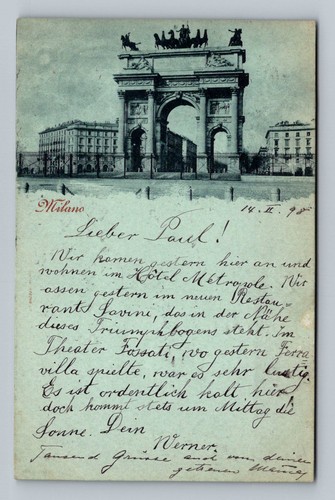 Milano
14. II. 98
Lieber Paul!
Wir kamen gestern hier an und
wohnen im Hôtel Métropole. Wir
assen gestern im neuen Restau-
rants Savini, das in der Nähe
dieses Triumphbogens steht. Im
Theater Fossati, wo gestern Ferra
villa spielte, war es sehr lustig.
Es ist ordentlich kalt hier,
doch kommt stets um Mittag die
Sonne. Dein
Werner.
Tausend Grüsse auch von deiner
getreuen